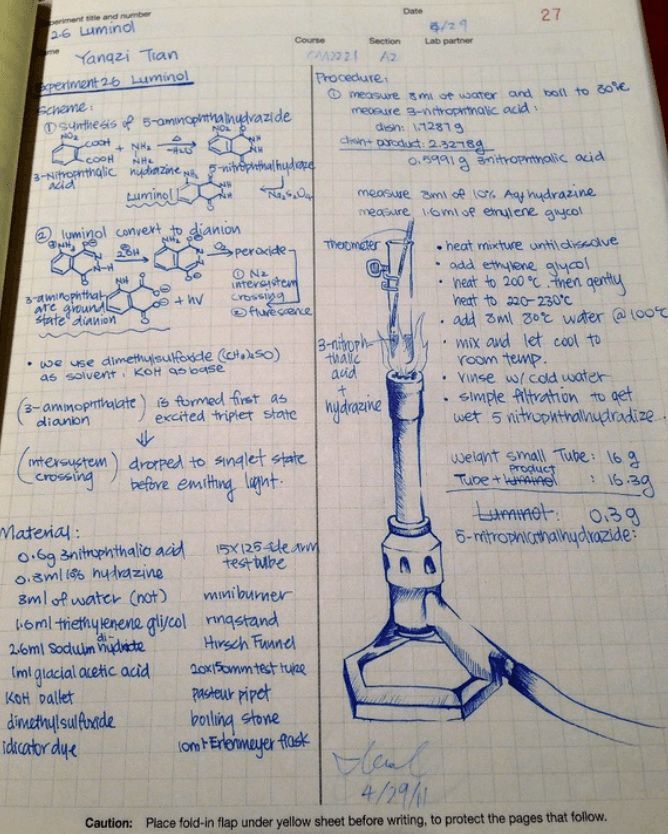 Experiment title and number
26 Luminol
Date
4/29
27
Name
Yangzi Tian
Course
Section
A2
Lab partner
Experiment 26 Luminol
Scheme:
① Synthesis of 5-aminophthalhydrazide
NO₂
COOH
COOH
+
NH₂
NH₂
Δ
-H₂O
NO₂
NH
NH
3-Nitrophthalic
acid
hydrazine
5-nitrophthalhydraze
Luminol
NH₂
NH
NH
Na₂S₂O₄
② luminol convert to dianion
NH₂
N-H
2OH
NH₂
N
N
O₂
peroxide
① N₂
intersystem
crossing
② flurescence
NH₂
+ hν
3-aminophthal
ate ground
state dianion
• we use dimethylsulfoxide (CH₃)₂SO)
as solvent, KOH as base
(3-aminophthalate dianion) is formed first as
excited triplet state
⇓
(intersystem crossing) dropped to singlet state
before emitting light.
Material:
0.6g 3nitrophthalic acid
0.8ml 10% hydrazine
8ml of water (hot)
1.6ml triethylenene glycol
2.6ml Sodium hydride
di
1ml glacial acetic acid
KOH pallet
dimethylsulfoxide
idicator dye
15x125-side arm
test tube
miniburner
ringstand
Hirsch Funnel
20x150mm test tube
pasteur pipet
boiling stone
10ml Erlenmeyer flask
Procedure:
① measure 8ml of water and boil to 80°c
measure 3-nitrophthalic acid:
dish: 1.7287g
dish + product: 2.3278g
0.5991g 3nitrophthalic acid
measure 8ml of 10% Aq hydrazine
measure 1.6ml of ethylene glycol
Thermometer
• heat mixture until dissolve
• add ethylene glycol
• heat to 200°c, then gently
heat to 220-230°c
• add 8ml 80°c water @100°c
• mix and let cool to
room temp.
• rinse w/ cold water
• simple filtration to get
wet 5 nitrophthalhydradize.
3-nitroph-
thalic
acid
+
hydrazine
weight small Tube: 16g
product
Tube + luminol : 16.3g
Luminol: 0.3g
5-nitrophlcathalhydrazide:
4/29/11
Caution: Place fold-in flap under yellow sheet before writing, to protect the pages that follow.